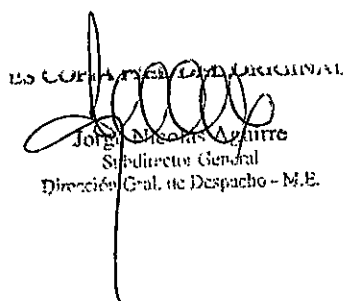 ES COPIA FIEL DEL ORIGINAL
Jorge Nicolás Aguirre
Subdirector General
Dirección Gral. de Despacho - M.E.